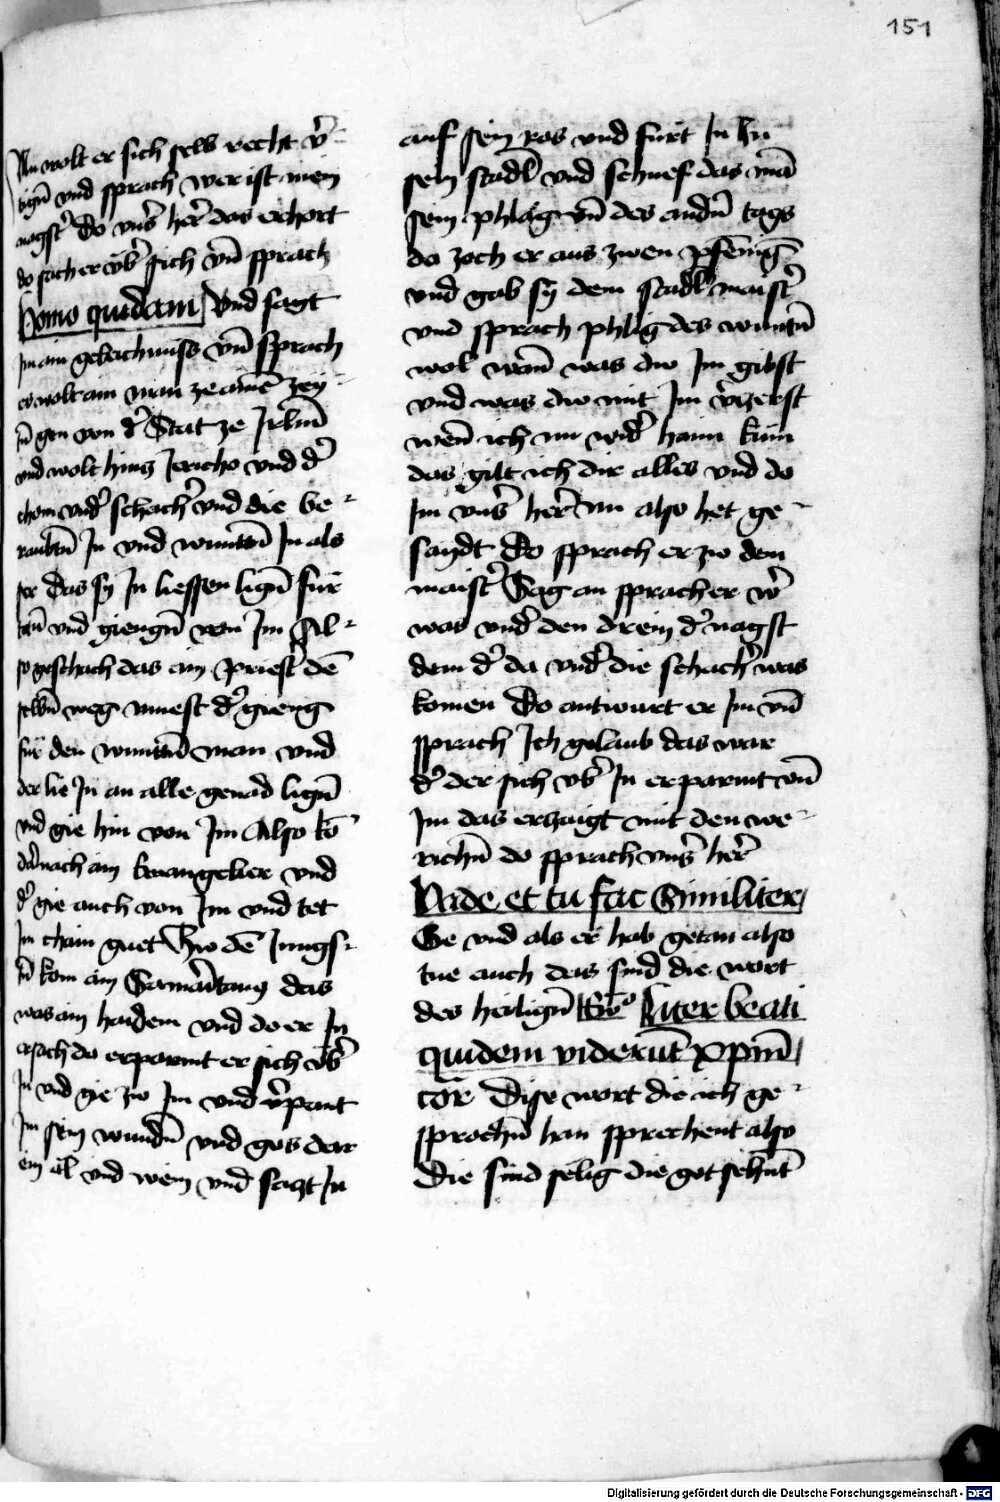 151
Nu wolt er sich selb recht v̄
tigñ vnd sprach wer ist mein
nagst̾ Do vns̾ her̾ das erhort
do sach er vb̾ sich vn̄ sprach
Homo quidam Vnd sagt
In ain geleichnuss vn̄ sprach
es wolt ain man ze ainē zey
tn̄ gen von d̾ Stat ze Jrl̄m
vnd wolt hincz Jericho vnd d̾
chom vnd̾ schach̾ vnd die be
raubtn̄ In vnd wuntn̄ In als
ser das sy In liessen lign̄ fur
tn̄ vnd giengn̄ von Im Al
so geschach das ain Priest̾ dē
selbn̄ weg muest d̾ gieng
fur den wuntn̄ man vnd
der lie In an alle genad lign̄
vnd gie hin von Im Also kō
darnach ain Ewangelier vnd
d̾ gie auch von Im vnd tet
Im chain guet Hiw dē Jungs
tn̄ kom ain Samaritanꝯ das
was ain haidem vnd do er In
ersach do erparmt er sich vb̾
In vnd gie zw Im vnd v̾pant
Im sein wundn̄ vnd gos dar
ein öl vnd wein vnd saczt In
auf sein ros vnd furt In hin
sein stadl vnd schuef das mā
sein phläg vn̄ des andn̄ tags
da zoch er aus zwen pfēniḡ
vnd gab sy dem stadl maist̾
vnd sprach phlig des wuntn̄
wol wan̄ was dw Im gibst
vnd was dw mit Im v̾czerst
wen̄ ich nu wid̾ haim kum
das gilt ich dir alles vnd do
Im vns̾ her̾ nu also het ge
saydt Do sprach er zw dem
maist̾ Sag an sprach er w̾
was vnd̾ den drein d̾ nagst
dem d̾ da vnd̾ die schach̾ was
komen Do antwurt er Im vn̄
sprach Ich gelaub das war
d̾ der sich vb̾ In erparmt vn̄
Im das erzaigt mit den we
richn̄ do sprach vns̾ her̾
Vade et tu fac Similiter
Ge vnd als er hab getan also
tue auch das sind die wort
des heilign̄ Ewo liter beati
quidem viderūt xpm̄
Dise wort die ich ge
sprochn̄ han sprechent also
Die sind selig die got sehn̄t
Digitalisierung gefördert durch die Deutsche Forschungsgemeinschaft - DFG